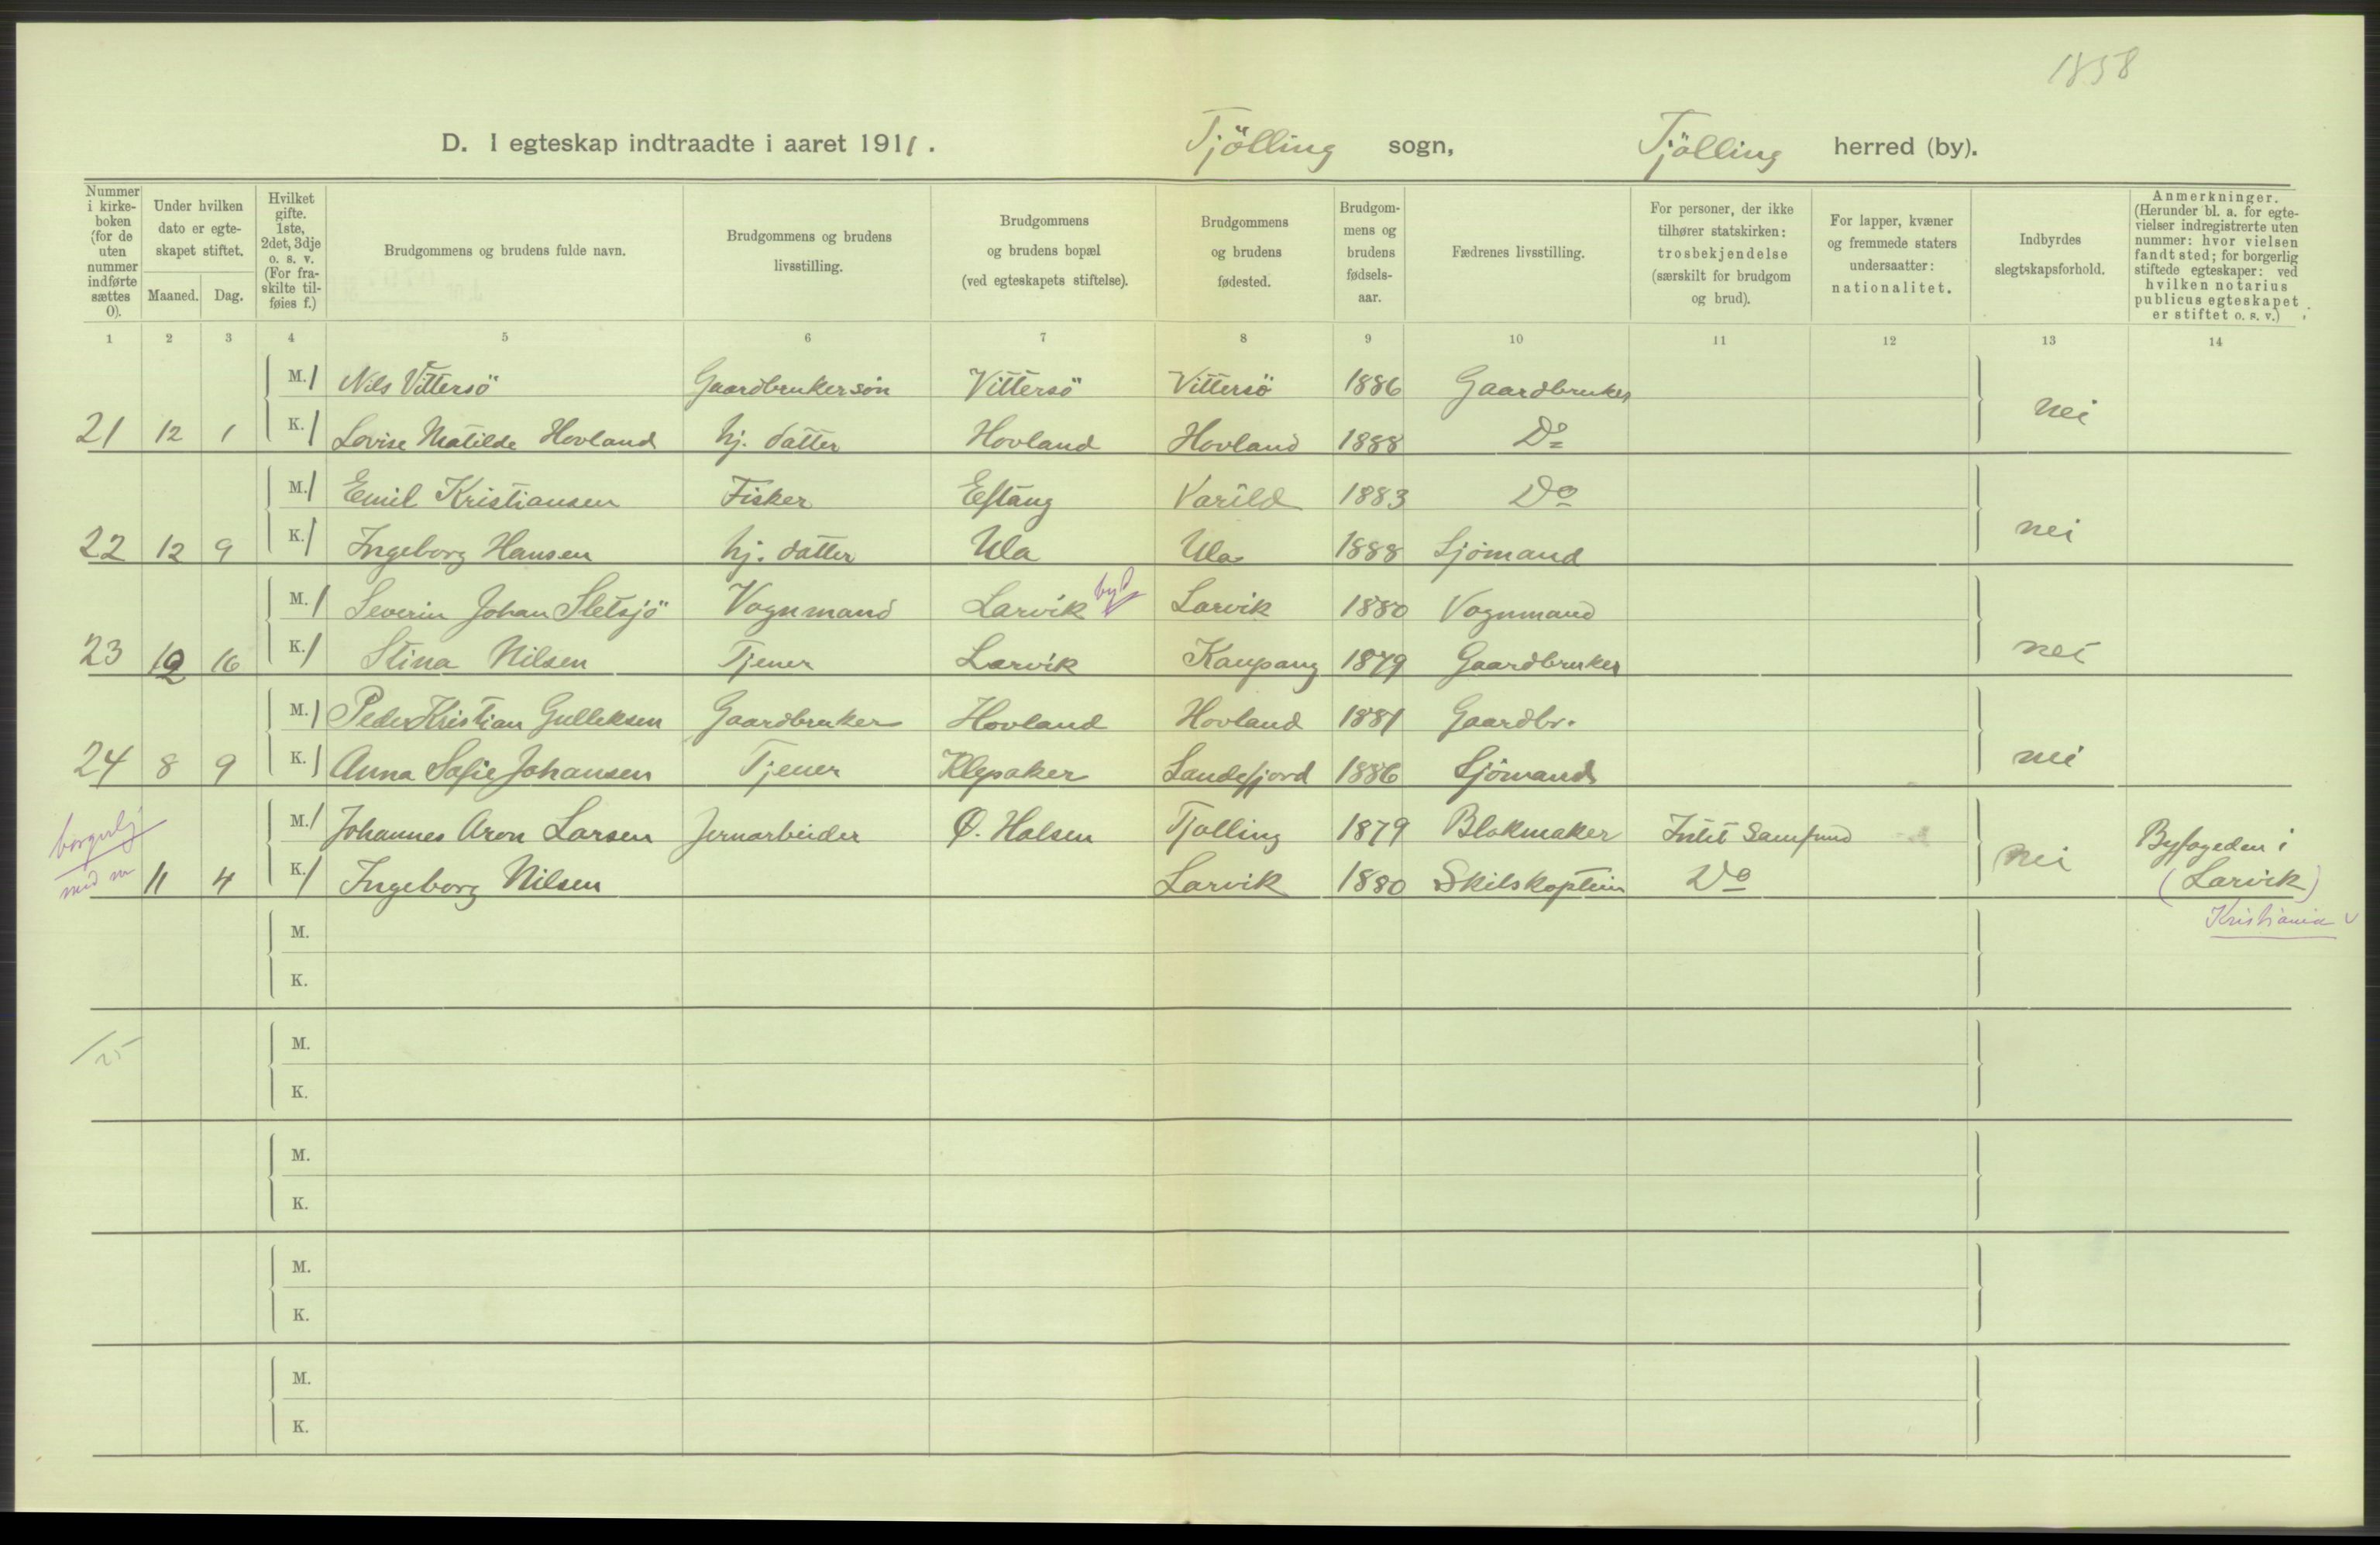 1858
D. I egteskap indtraadte i aaret 1911. Tjölling sogn, Tjölling herred (by).
Nummer i kirkeboken (for de uten nummer indførte sættes 0).
Under hvilken dato er egteskapet stiftet.
Maaned. Dag.
Hvilket gifte. 1ste, 2det, 3dje o. s. v. (For fraskilte tilføies f.)
Brudgommens og brudens fulde navn.
Brudgommens og brudens livsstilling.
Brudgommens og brudens bopæl (ved egteskapets stiftelse).
Brudgommens og brudens fødested.
Brudgommens og brudens fødselsaar.
Fædrenes livsstilling.
For personer, der ikke tilhører statskirken: trosbekjendelse (særskilt for brudgom og brud).
For lapper, kvæner og fremmede staters undersaatter: nationalitet.
Indbyrdes slegtskapsforhold.
Anmerkninger. (Herunder bl. a. for egtevielser indregistrerte uten nummer: hvor vielsen fandt sted; for borgerlig stiftede egteskaper: ved hvilken notarius publicus egteskapet er stiftet o. s. v.)
1 2 3 4 5 6 7 8 9 10 11 12 13 14
M. 1 Nils Vittersö Gaardbrukersön Vittersö Vittersö 1886 Gaardbruker
21 12 1 K. 1 Lovise Matilde Hovland hj. datter Hovland Hovland 1888 Do nei
M. 1 Emil Kristiansen Fisker Eftang Varild 1883 Do
22 12 9 K. 1 Ingeborg Hansen hj. datter Ula Ula 1888 Sjömand nei
M. 1 Severin Johan Sletsjö Vognmand Larvik by Larvik 1880 Vognmand
23 12 16 K. 1 Stina Nilsen Tjener Larvik Kaupang 1879 Gaardbruker nei
M. 1 Peder Kristian Gulleksen Gaardbruker Hovland Hovland 1881 Gaardbr.
24 8 9 K. 1 Anna Sofie Johansen Tjener Klepaker Sandefjord 1886 Sjömand nei
borgerlig M. 1 Johannes Aron Larsen Jernarbeider Ø. Halsen Tjølling 1879 Blokmaker Intet Samfund Byfogeden i
11 4 K. 1 Ingeborg Nilsen Larvik 1880 Skibskaptein Do nei (Larvik)
Kristiania
M.
K.
25
M.
K.
M.
K.
M.
K.
M.
K.